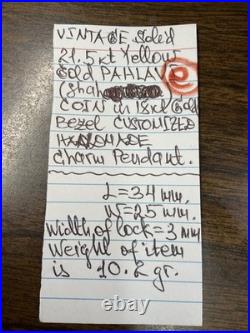 VINTAGE Solid
21.5kt Yellow
Gold PAHLAVI
(Shah
COIN in 18kt Gold
Bezel CUSTOMIZED
HANDMADE
Charm Pendant.
L=34 mm,
W=25 mm.
Width of lock=3 mm
Weight of item
is 10.2 gr.